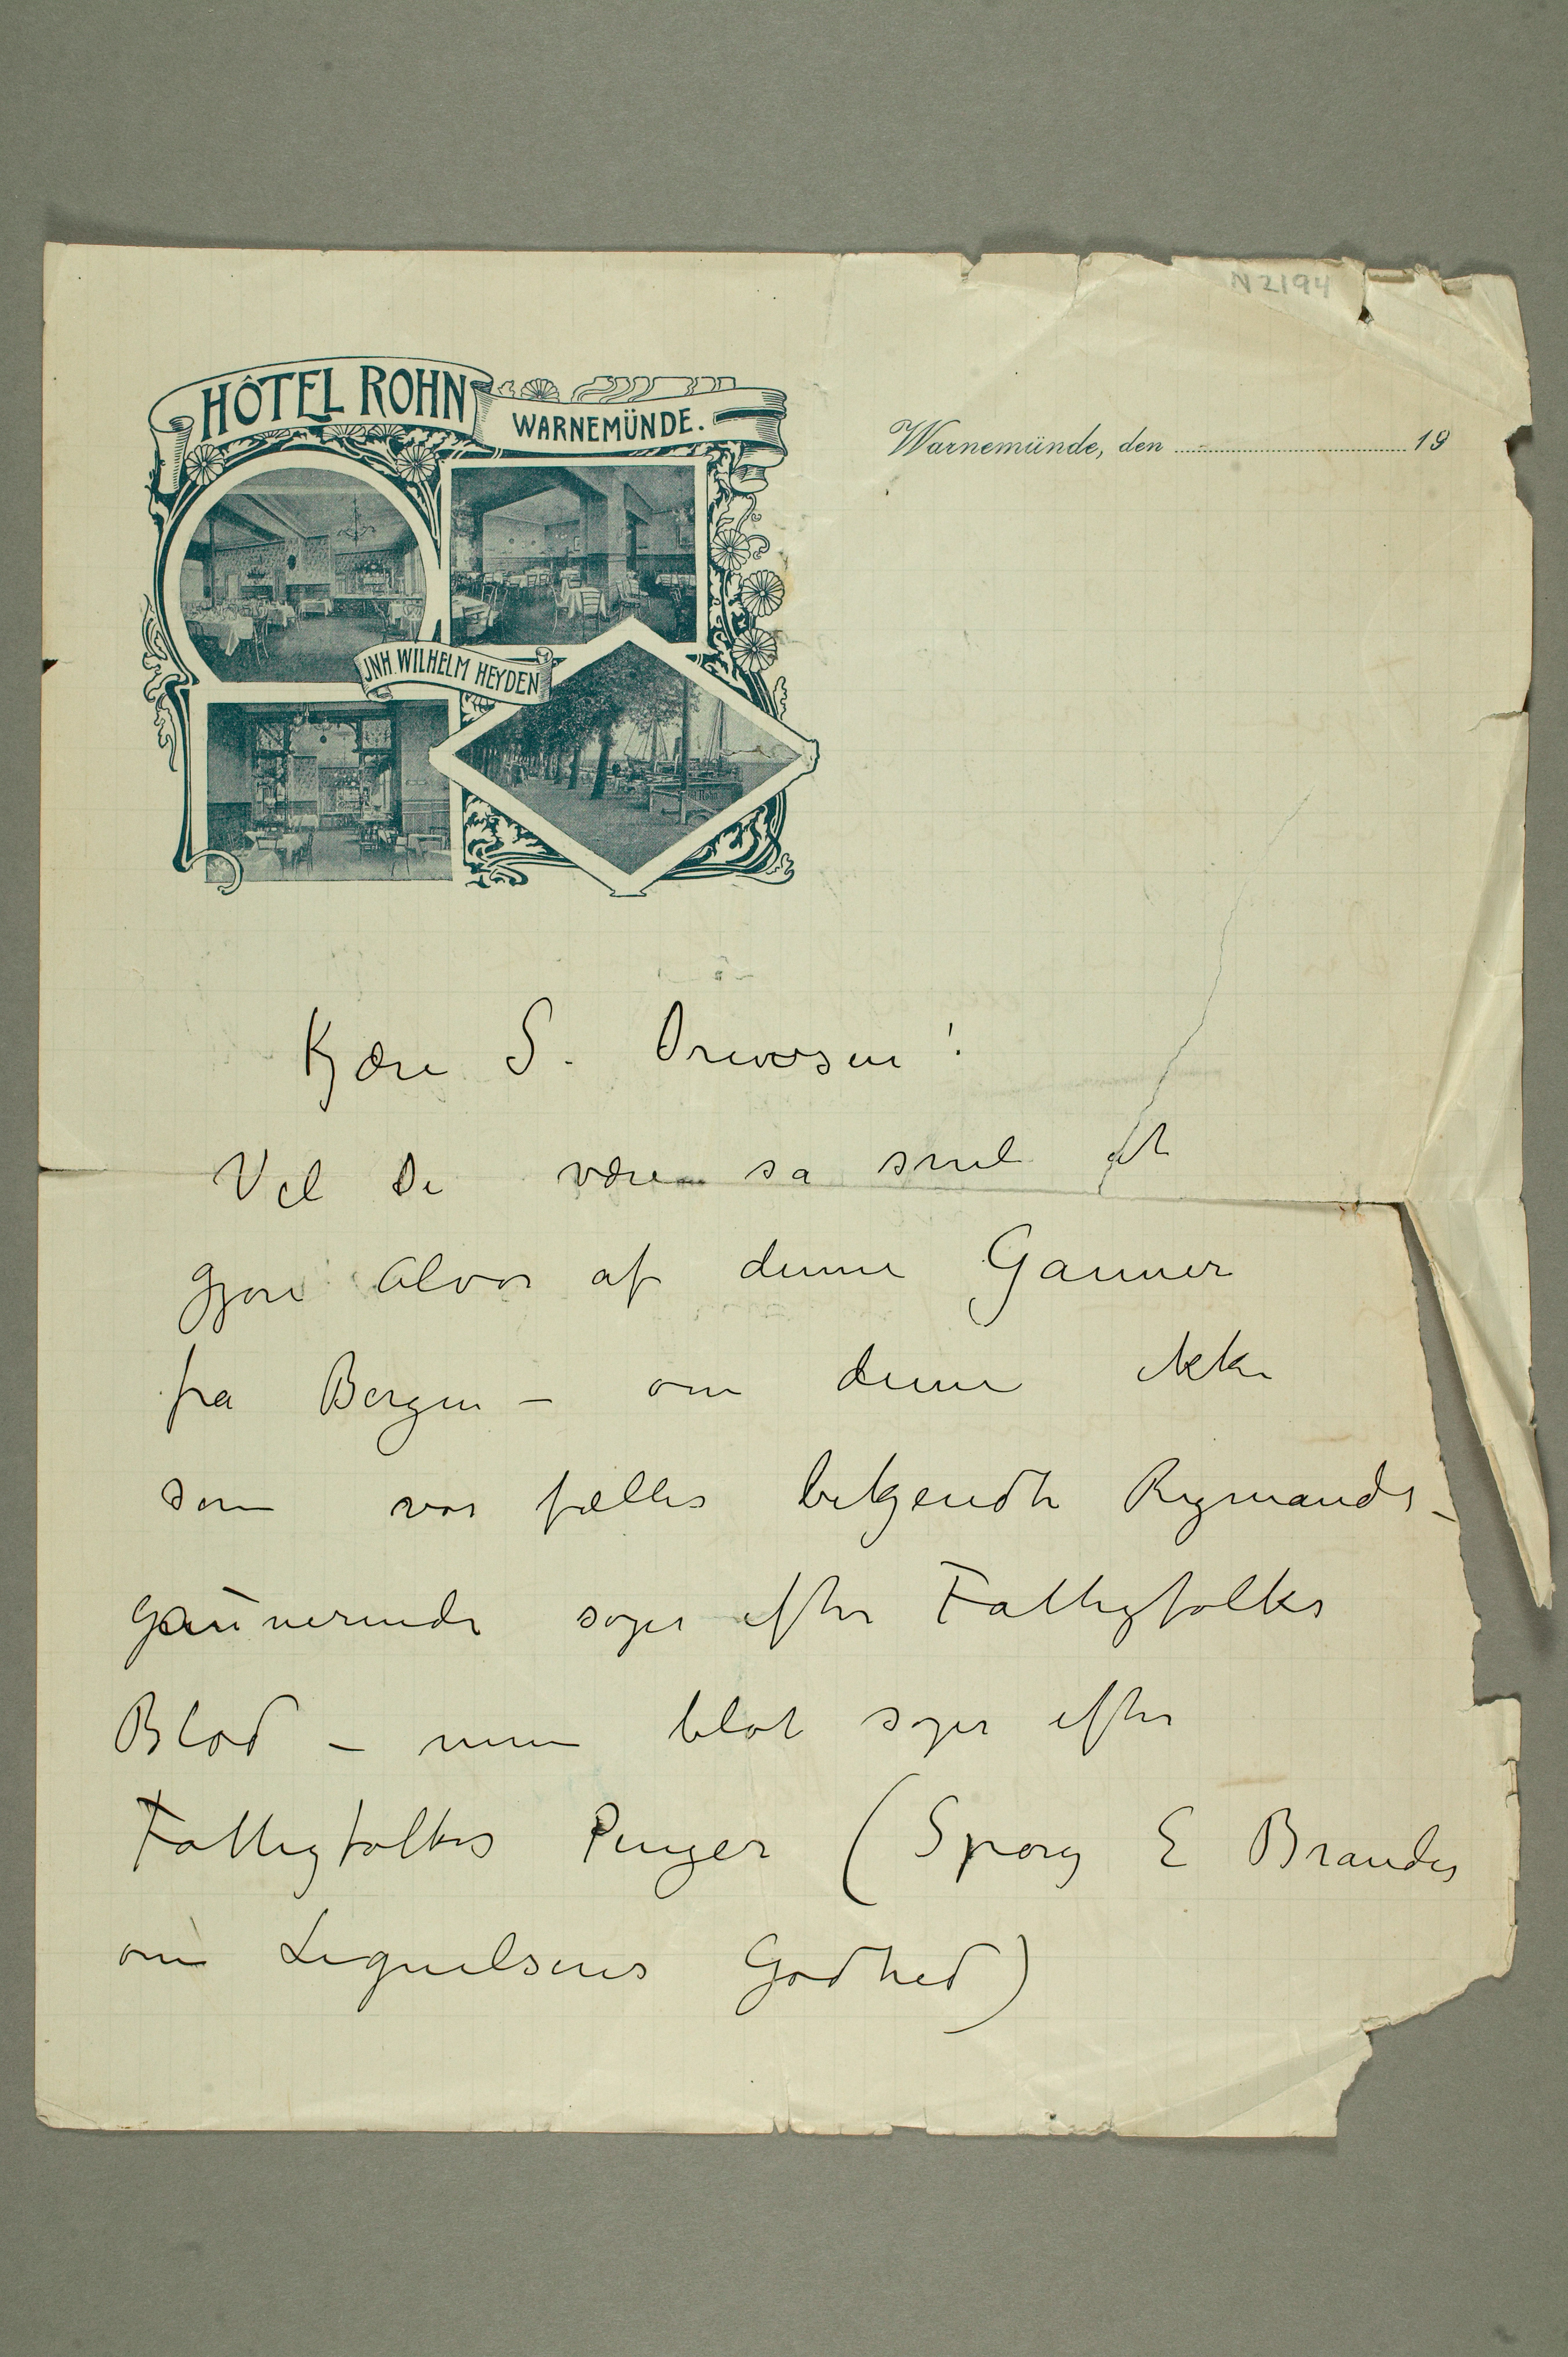 N 2194
HÔTEL ROHN
WARNEMÜNDE.
JNH. WILHELM HEYDEN
Warnemünde, den 19
Kjære S. Drewsen!
Vil De være så snil at
gjøre Alvor af denne Gauner
fra Bergen – om denne ikke
som vor fælles bekjendte Rigmands-
gaunerinde søger efter Fattigfolks
Blod – men blot søger efter
Fattigfolks Penger (Spørg E Brandes
om Lignelsens Godhed)